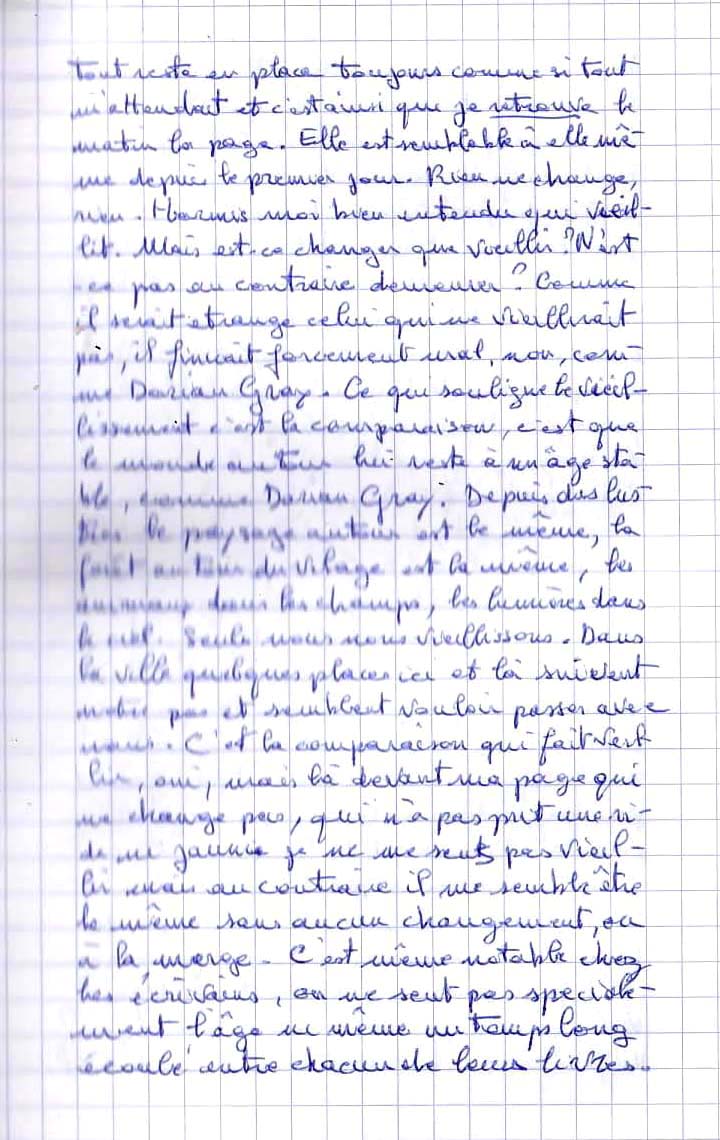 tout reste en place toujours comme si tout
m'attendait et c'est ainsi que je retrouve le
matin la page. Elle est semblable à elle mê-
me depuis le premier jour. Rien ne change,
rien. Hormis moi bien entendu qui vieil-
lit. Mais est-ce changer que vieillir? N'est
-ce pas au contraire demeurer? Comme
il serait etrange celui qui ne vieillirait
pas, il finirait forcement mal, non, com-
me Dorian Gray. Ce qui souligne le vieil-
lissement c'est la comparaison, c'est que
le monde autour lui reste à un âge sta-
ble, comme Dorian Gray. Depuis des lus-
tres le paysage autour est le même, la
forêt autour du village est la même, les
animaux dans les champs, les lumières dans
le ciel. Seuls nous nous vieillissons. Dans
la ville quelques places ici et là suivent
notre pas et semblent vouloir passer avec
nous. C'est la comparaison qui fait vieil-
lir, oui, mais là devant ma page qui
ne change pas, qui n'a pas prit une ri-
de ni jaunie je ne me sents pas vieil-
lir mais au contraire il me semble être
le même sans aucun changement, ou
à la marge. C'est même notable chez
les écrivains, on ne sent pas speciale-
ment l'âge ni même un temps long
écoulé entre chacun de leurs livres.